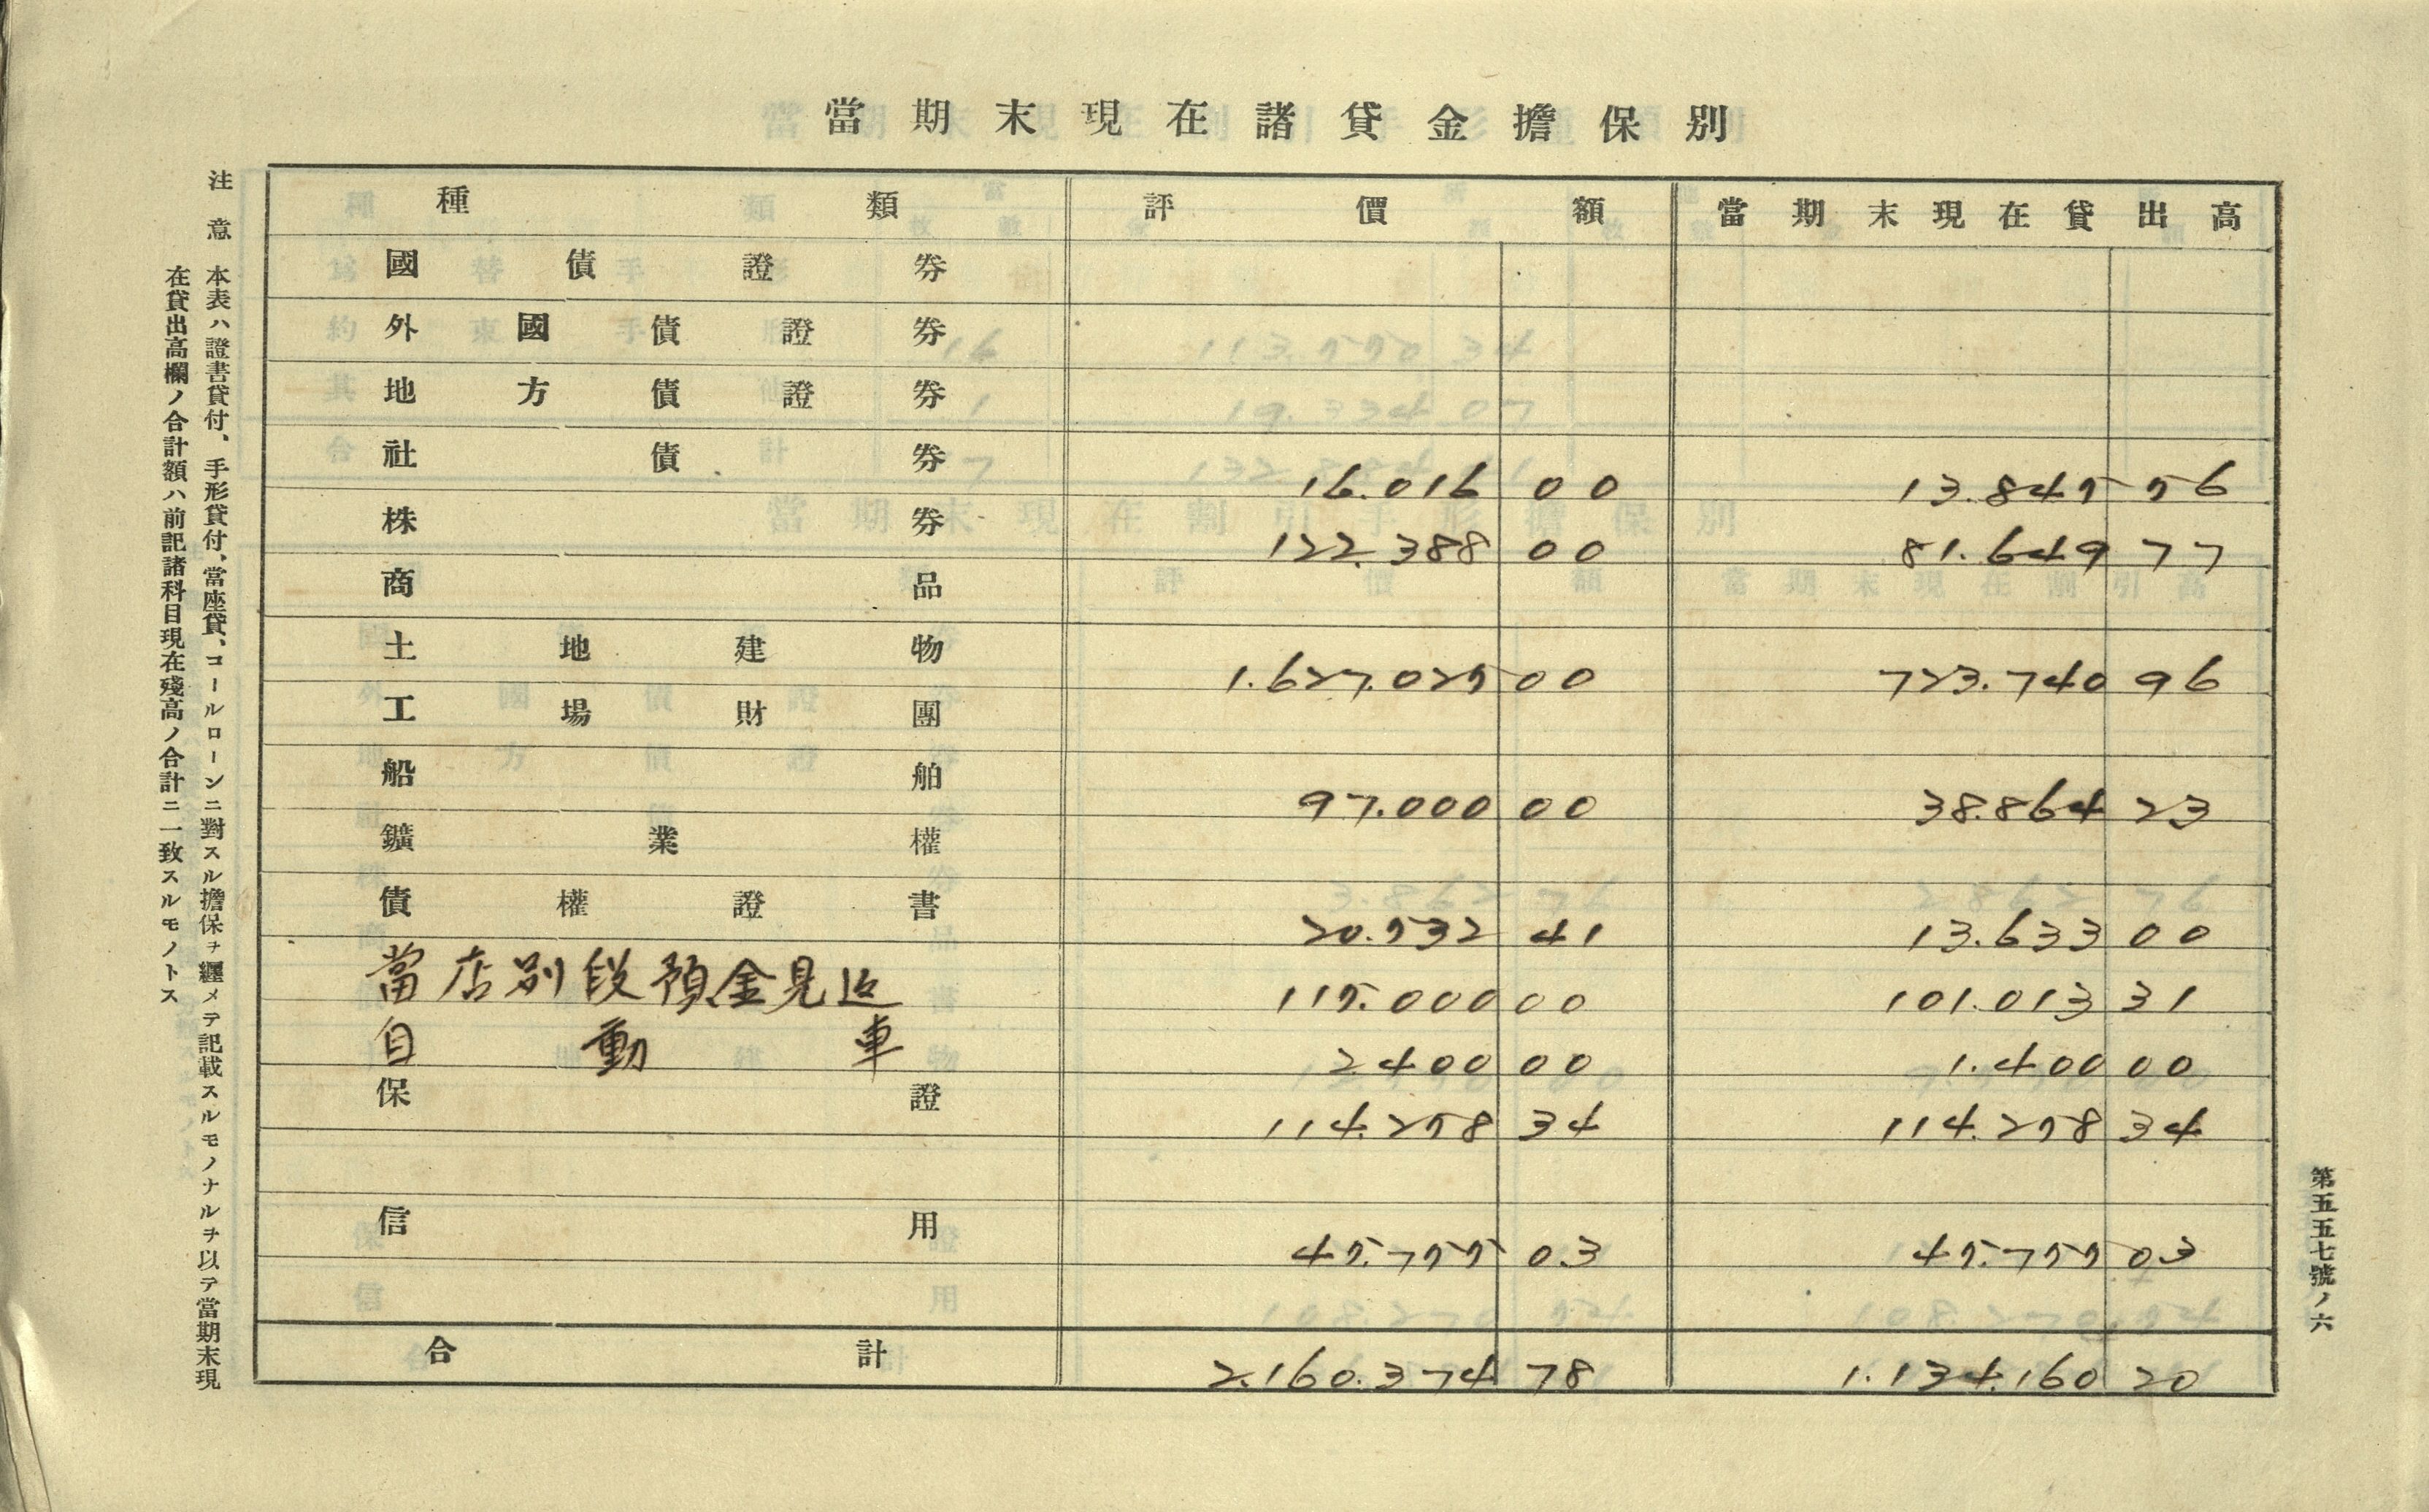 當期末現在諸貸金擔保別
種類 評價額 當期末現在貸出高
國債證券
外國債證券
地方債證券
社債券 16.016 00 13.845 56
株券 122.388 00 81.649 77
商品
土地建物 1.627.025 00 723.740 96
工場財團
船舶 97.000 00 38.864 23
鑛業權
債權證書 20.532 41 13.633 00
當店別段預金見返 115.000 00 101.013 31
自動車 2400 00 1.400 00
保證 114.258 34 114.258 34
信用 45.755 03 45.755 03
合計 2.160.374 78 1.134.160 20
注意 本表ハ證書貸付、手形貸付、當座貸、コールローンニ對スル擔保ヲ纒メテ記載スルモノナルヲ以テ當期末現
在貸出高欄ノ合計額ハ前記諸科目現在殘高ノ合計ニ一致スルモノトス
第五五七號ノ六